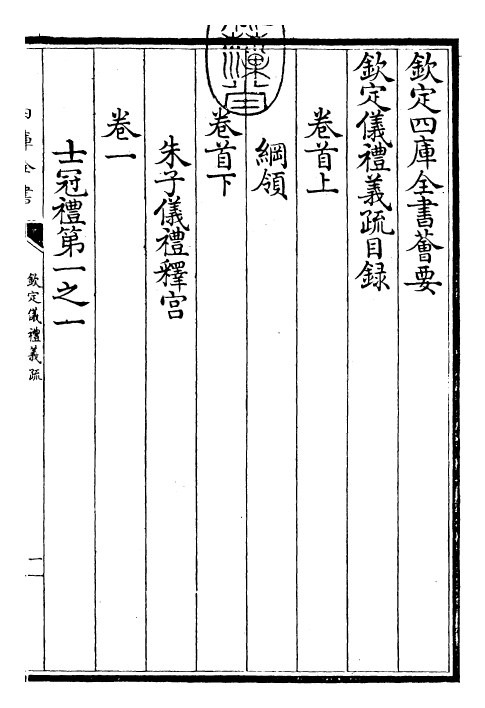 欽定四庫全書薈要
欽定儀禮義疏目録
卷首上
綱領
卷首下
朱子儀禮釋宫
卷一
士冠禮第一之一
欽定儀禮義疏
一